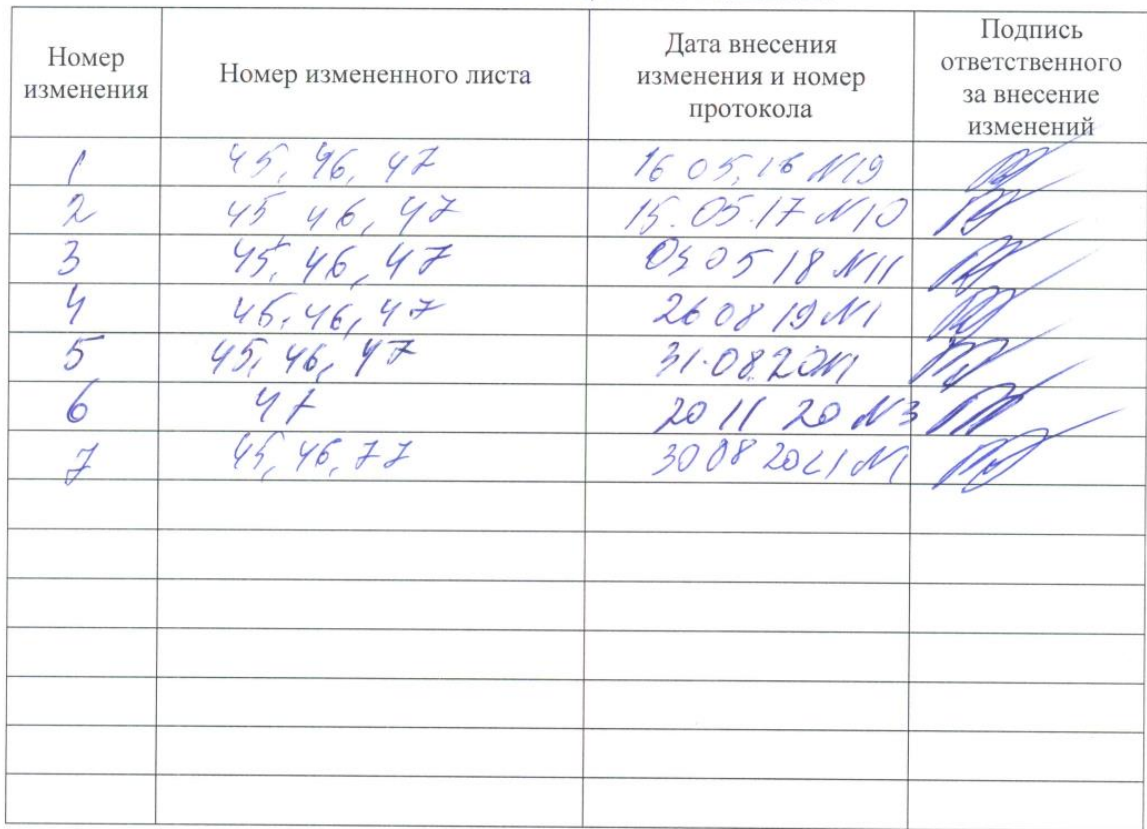 Номер изменения Номер измененного листа Дата внесения изменения и номер протокола Подпись ответственного за внесение изменений
1 45, 46, 47 16 05, 16 №19
2 45 46, 47 15. 05. 17 №10
3 45, 46, 47 05 18 №11
4 46, 46, 47 26 08 19 №1
5 45, 46, 47 31.08.20 №1
6 47 20 11 20 №3
7 45, 46, 77 30 08 2021 №1